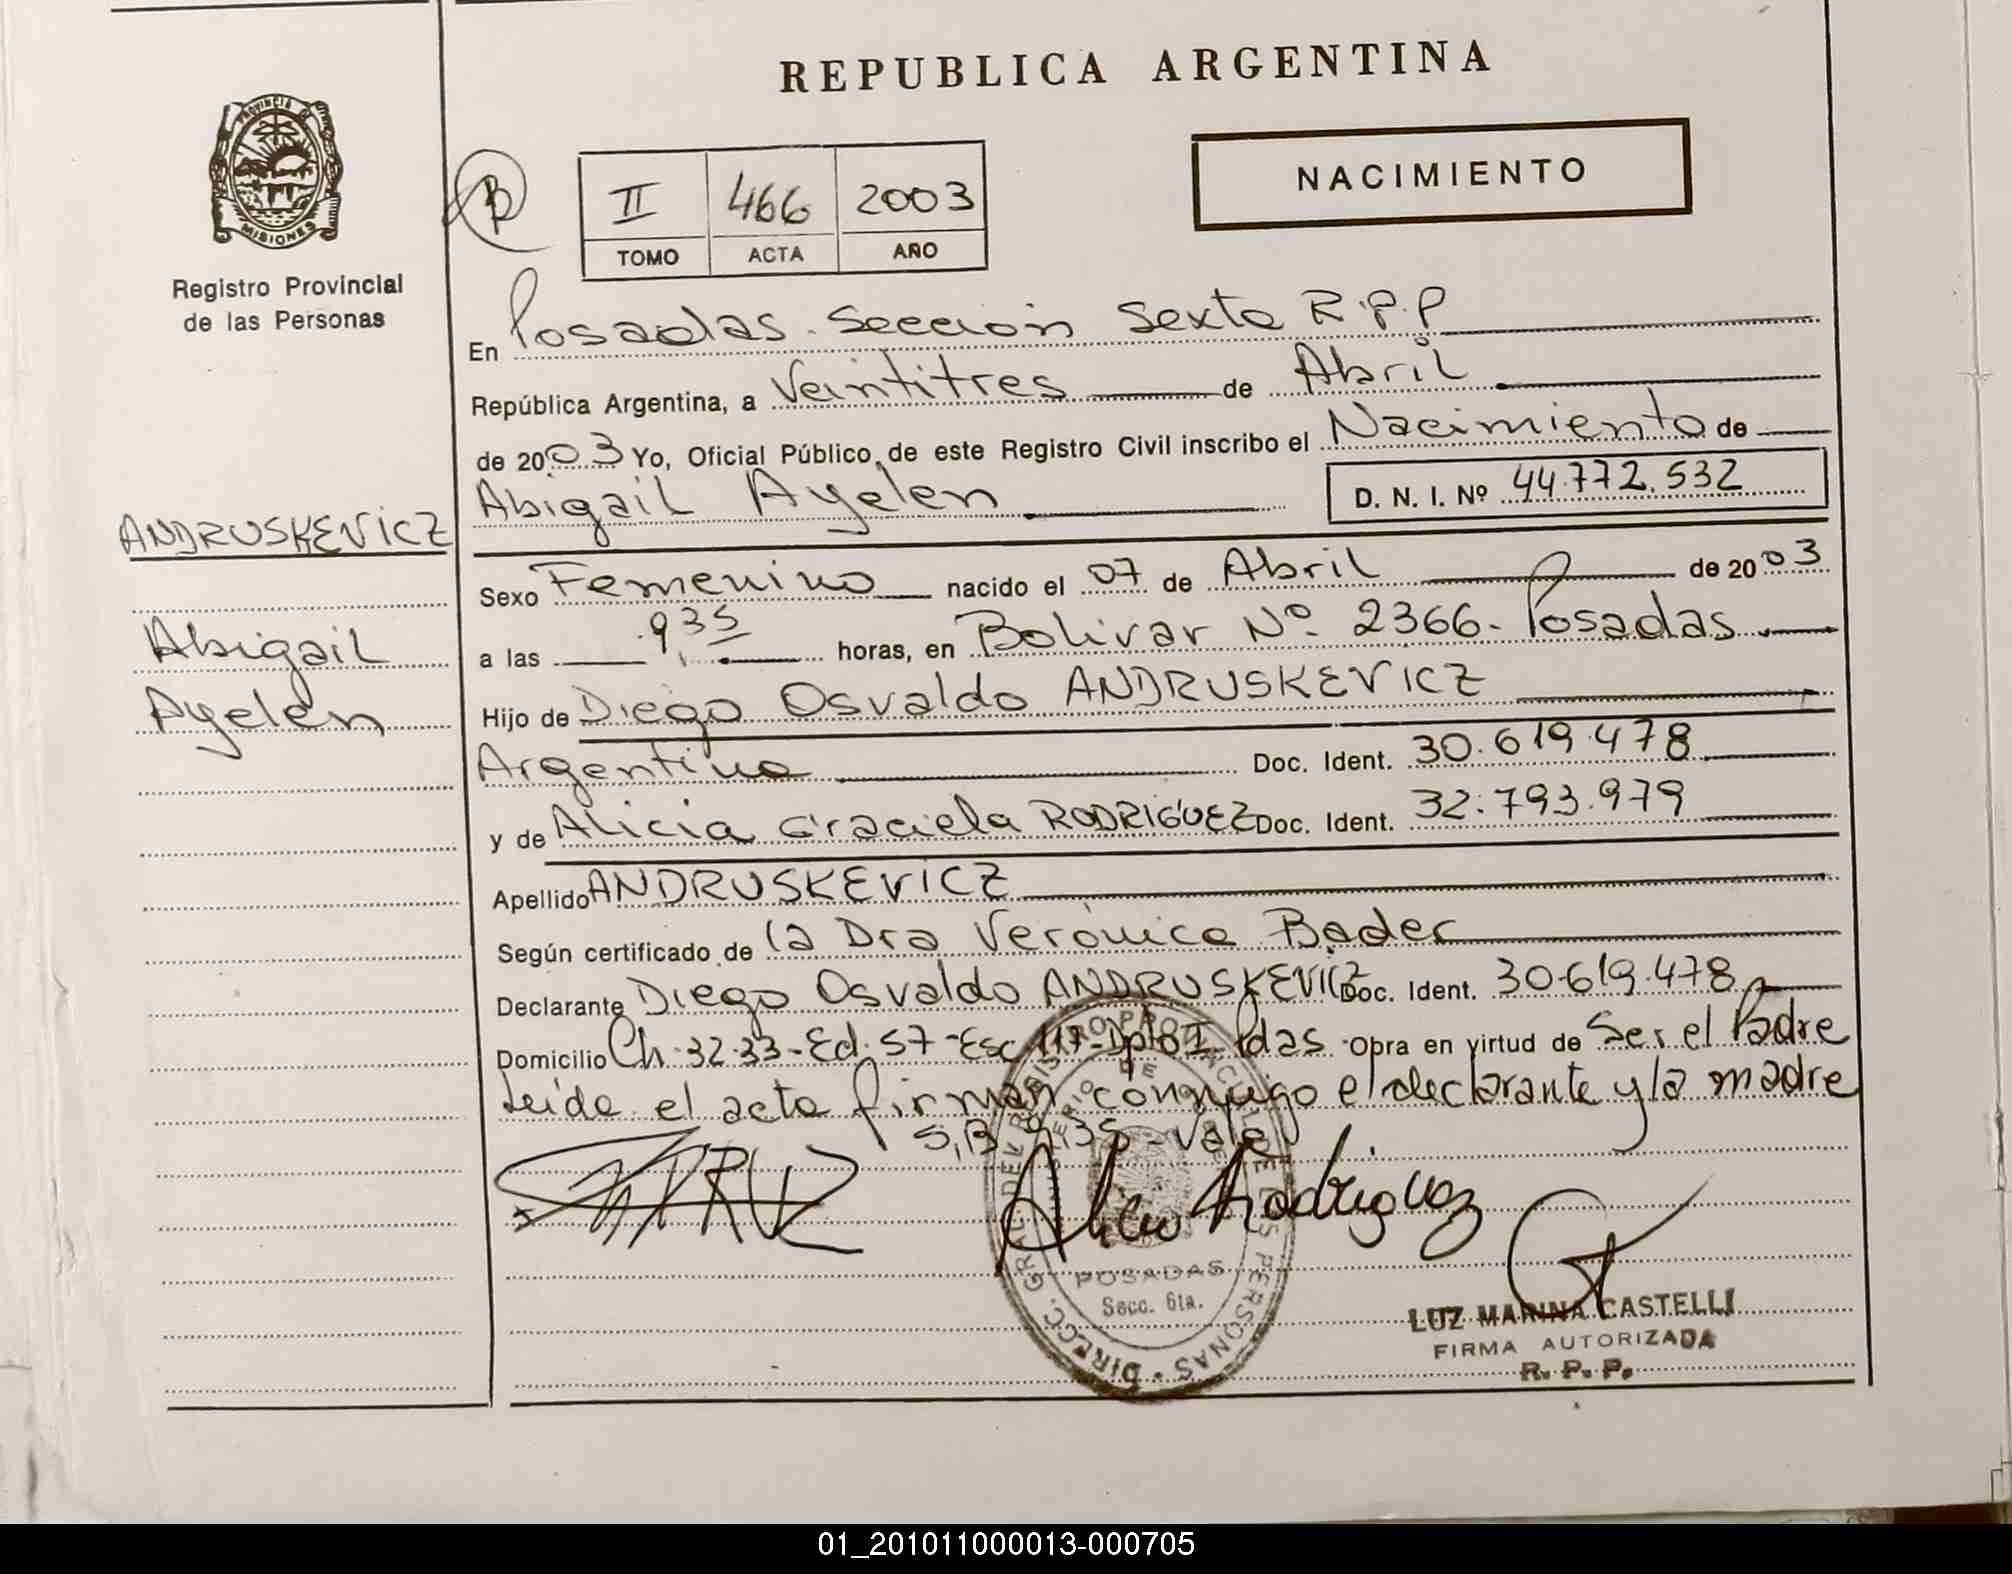 REPUBLICA ARGENTINA
NACIMIENTO
PROVINCIA DE
MISIONES
Registro Provincial
de las Personas
B
II 466 2003
TOMO ACTA AÑO
En Posadas. Sección Sexta R.P.P
República Argentina, a Veintitres de Abril
de 2003 Yo, Oficial Público de este Registro Civil inscribo el Nacimiento de
Abigail Ayelen D. N. I. Nº 44.772.532
ANDRUSKEVICZ
Abigail
Ayelen
Sexo Femenino nacido el 07 de Abril de 2003
a las 9,35 horas, en Bolivar Nº 2366- Posadas
Hijo de Diego Osvaldo ANDRUSKEVICZ
Argentina Doc. Ident. 30.619.478
y de Alicia Graciela RODRIGUEZ Doc. Ident. 32.793.979
Apellido ANDRUSKEVICZ
Según certificado de la Dra Verónica Bader
Declarante Diego Osvaldo ANDRUSKEVICZ Doc. Ident. 30.619.478
Domicilio Ch. 32-33-Ed. 57-Esc 117-Dpto I Pdas Obra en virtud de Ser el Padre
Leida el acta firman conmigo el declarante y la madre
S,B 9,35 - Vale
Alicia Rodriguez
DIRECC. GRAL DEL REGISTRO PROVINCIAL DE LAS PERSONAS
MINISTERIO DE
POSADAS
Secc. 6ta.
LUZ MARINA CASTELLI
FIRMA AUTORIZADA
R. P. P.
01_201011000013-000705